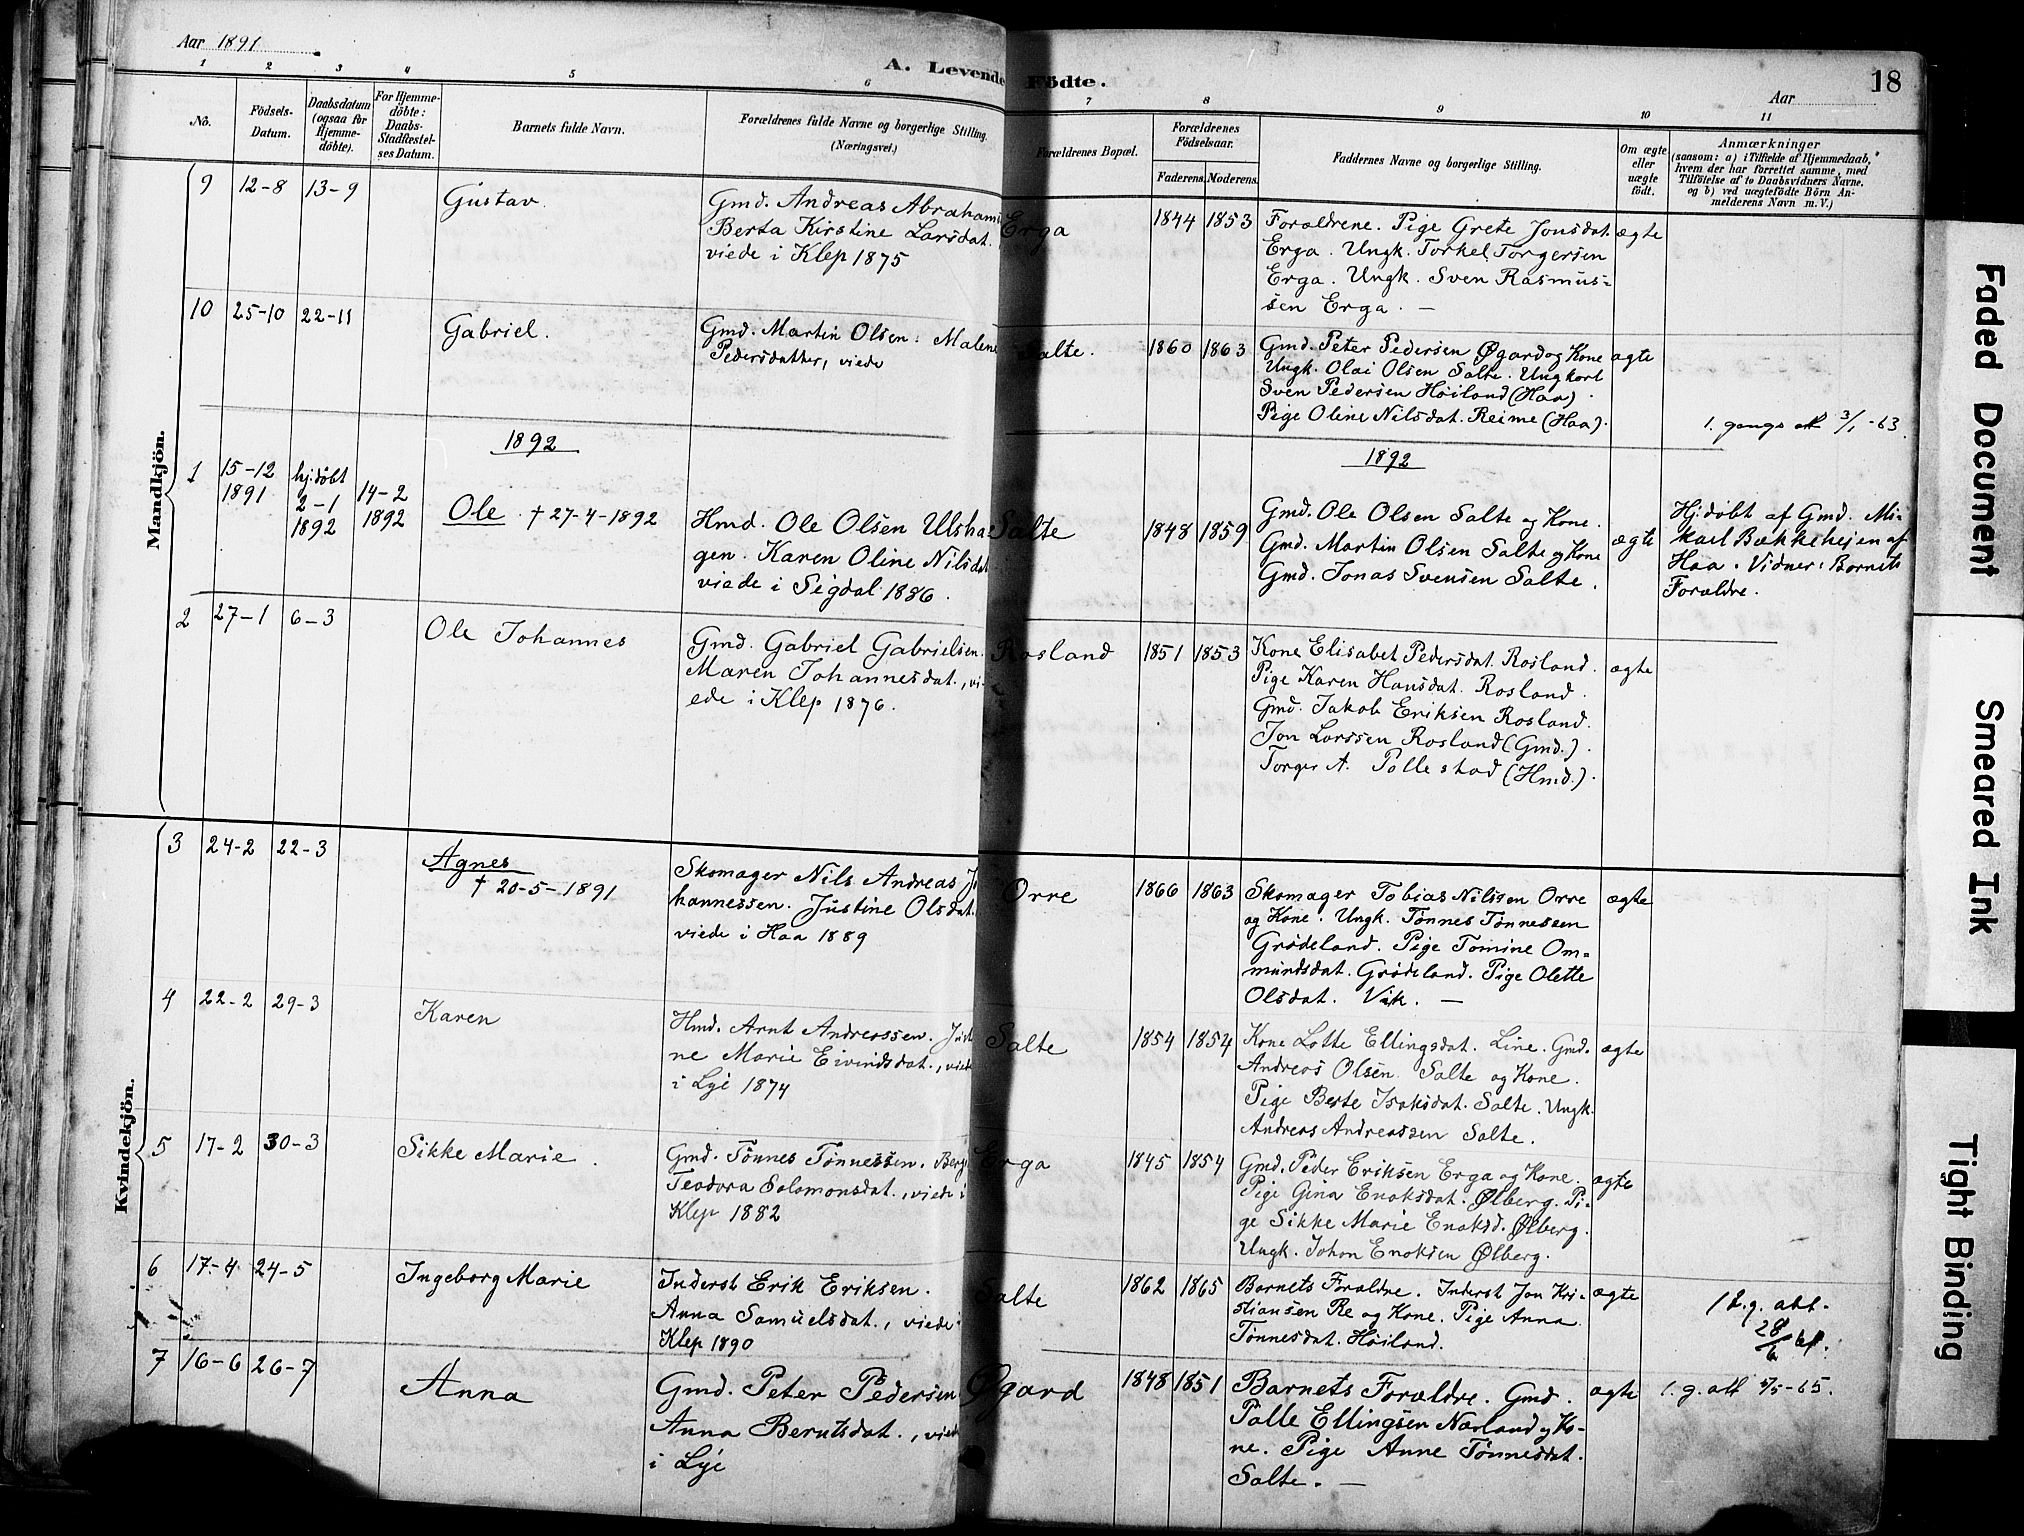 Aar 1891
A. Levende Födte.
Aar
18
1 2 3 4 5 6 7 8 9 10 11
No.
Födsels-
Datum.
Daabsdatum
(ogsaa for
Hjemme-
döbte).
For Hjemme-
döbte:
Daabs-
Stadfæstel-
ses Datum.
Barnets fulde Navn.
Forældrenes fulde Navne og borgerlige Stilling.
(Næringsvei.)
Forældrenes Bopæl.
Forældrenes
Födselsaar.
Faderens. Moderens.
Faddernes Navne og borgerlige Stilling.
Om ægte
eller
uægte
födt.
Anmærkninger
(saasom: a) i Tilfælde af Hjemmedaab,
hvem der har forrettet samme, med
Tilföielse af to Daabsvidners Navne,
og b) ved uægtefödte Börn An-
melderens Navn m. V.)
Mandkjön.
9 12-8 13-9 Gustav.
Gmd. Andreas Abraham
Berta Kirstine Larsdat.
viede i Klep 1875
Erga 1844 1853
Forældrene. Pige Grete Jonsdat.
Erga. Ungk. Torkel Torgersen
Erga. Ungk. Sven Rasmus-
sen Erga. —
ægte
10 25-10 22-11 Gabriel.
Gmd. Martin Olsen. Malene
Pedersdatter, viede
Salte. 1860 1863
Gmd. Peter Pedersen Øgard og Kone
Ungk. Olai Olsen Salte. Ungkarl
Sven Pedersen Høiland (Haa).
Pige Oline Nilsdat. Reime (Haa).
ægte
1. gangs att 3/1-63.
1892
1892
1 15-12
1891
hj.døbt
2-1
1892
14-2
1892
Ole † 27-4-1892
Hmd. Ole Olsen Ulsha-
gen. Karen Oline Nilsdat
viede i Sigdal 1886.
Salte 1848 1859
Gmd. Ole Olsen Salte og Kone.
Gmd. Martin Olsen Salte og Kone
Gmd. Jonas Svensen Salte.
ægte
Hj.døbt af Gmd. Mi-
kael Bækkehejen af
Haa. Vidner: Barnets
Forældre.
2 27-1 6-3 Ole Johannes
Gmd. Gabriel Gabrielsen.
Maren Johannesdat., vi-
ede i Klep 1876.
Rosland 1851 1853
Kone Elisabet Pedersdat. Rosland.
Pige Karen Hansdat. Rosland.
Gmd. Jakob Eriksen Rosland.
Jon Larssen Rosland (Gmd.).
Torger A. Pollestad (Hmd.).
ægte
Kvindekjön.
3 24-2 22-3 Agnes
† 20-5-1891
Skomager Nils Andreas Jo
hannessen. Justine Olsdat.
viede i Haa 1889
Orre 1866 1863
Skomager Tobias Nilssen Orre
og Kone. Ungk. Tønnes Tønnessen
Grødeland. Pige Tomine Om-
mundsdat. Grødeland. Pige Olette
Olsdat. Vik. —
ægte
4 22-2 29-3 Karen
Hmd. Arnt Andreassen. Justi
ne Marie Eivindsdat., viede
i Lye 1874
Salte 1854 1854
Kone Lotte Ellingsdat. Line. Gmd.
Andreas Olsen Salte og Kone.
Pige Berte Isaksdat. Salte. Ungk.
Andreas Andreassen Salte.
ægte
5 17-2 30-3 Sikke Marie.
Gmd. Tønnes Tønnessen. Berg
Teodora Salomonsdat., viede i
Klep 1882
Erga 1845 1854
Gmd. Peder Eriksen Erga og Kone.
Pige Gina Enoksdat. Ølberg. Pi-
ge Sikke Marie Enoksd. Ølberg.
Ungk. Johan Enoksen Ølberg.
ægte
6 17-4 24-5 Ingeborg Marie
Inderst Erik Eriksen.
Anna Samuelsdat., viede i
Klep 1890
Salte 1862 1865
Barnets Forældre. Inderst Jon Kri-
stiansen Re og Kone. Pige Anna
Tønnesdat. Høiland.
ægte
1 g. att.
28/6 61.
7 16-6 26-7 Anna
Gmd. Peter Pedersen
Anna Berntsdat., viede
i Lye
Øgard 1848 1851
Barnets Forældre. Gmd.
Palle Ellingsen Nærland og Ko-
ne. Pige Anne Tønnesdat.
Salte. —
ægte
1. g. att 5/5-65.
Faded Document
Smeared Ink
Tight Binding